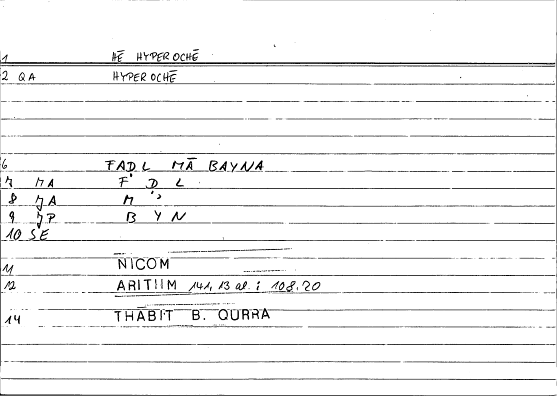 1 HĒ HYPEROCHĒ
2 QA HYPEROCHĒ
6 FAḌL MĀ BAYNA
7 MA F Ḍ L
8 JA M '
9 JP B Y N
10 SE
11 NICOM
12 ARITIIM 141, 13 al. : 108.20
14 THABIT B. QURRA